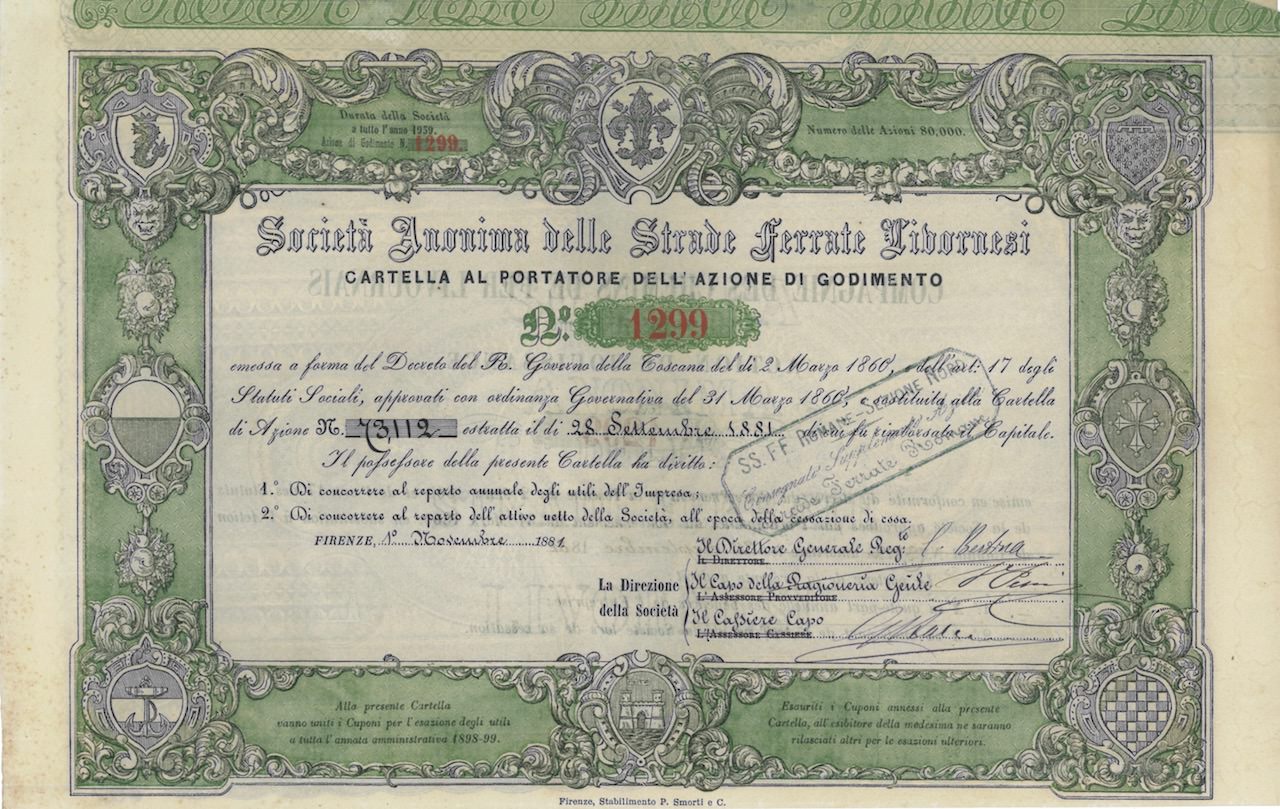 Durata della Società
a tutto l'anno 1959.
Azione di Godimento N. 1299
Numero delle Azioni 80,000.
Società Anonima delle Strade Ferrate Livornesi
CARTELLA AL PORTATORE DELL'AZIONE DI GODIMENTO
N.º 1299
emessa a forma del Decreto del R. Governo della Toscana del dì 2 Marzo 1860, e dell'art: 17 degli
Statuti Sociali, approvati con ordinanza Governativa del 31 Marzo 1860, e sostituita alla Cartella
di Azione N. 73112 estratta il dì 28 Settembre 1881 di cui fu rimborsato il Capitale.
Il possessore della presente Cartella ha diritto:
1.º Di concorrere al reparto annuale degli utili dell'Impresa;
2.º Di concorrere al reparto dell'attivo netto della Società, all'epoca della cessazione di essa.
FIRENZE, 1º Novembre 1881
SS. FF. ROMANE-SEZIONE NORD
Strade Ferrate Romane
La Direzione
della Società
Il Direttore Generale Reg:to
IL DIRETTORE
Il Capo della Ragioneria Gen:le
L'ASSESSORE PROVVEDITORE
Il Cassiere Capo
L'ASSESSORE CASSIERE
Alla presente Cartella
vanno uniti i Cuponi per l'esazione degli utili
a tutta l'annata amministrativa 1898-99.
Esauriti i Cuponi annessi alla presente
Cartella, all'esibitore della medesima ne saranno
rilasciati altri per le esazioni ulteriori.
Firenze, Stabilimento P. Smorti e C.